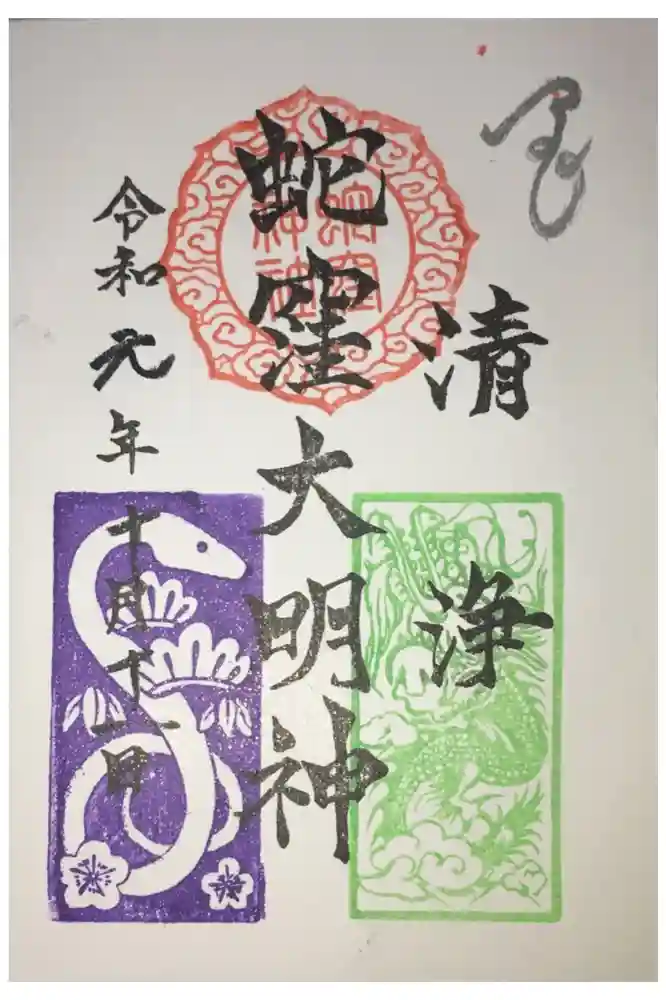 清浄
蛇窪大明神
蛇窪神社
令和元年十月十一日